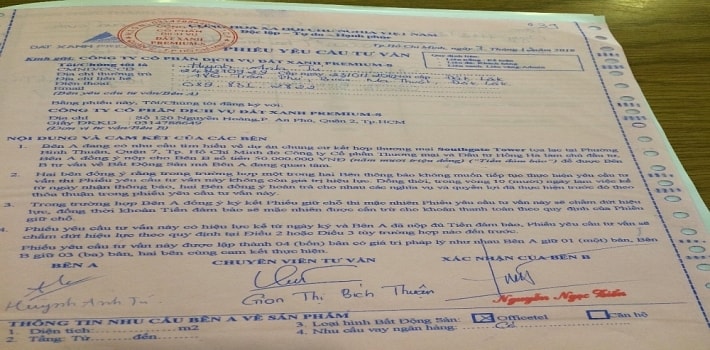 CỘNG HÒA XÃ HỘI CHỦ NGHĨA VIỆT NAM
Độc lập - Tự do - Hạnh phúc
CỔ PHẦN
DỊCH VỤ
ĐẤT XANH
PREMIUM-S
ĐẤT XANH PREMIUM
Tp.Hồ Chí Minh, ngày
PHIẾU YÊU CẦU TƯ VẤN
Kính gửi: CÔNG TY CỔ PHẦN DỊCH VỤ ĐẤT XANH PREMIUM-S
Tôi/Chúng tôi là
CMND/CCCD
Địa chỉ thường trú
Địa chỉ liên hệ
Điện thoại
Email
(Bên yêu cầu tư vấn/Bên A)
Bằng phiếu này, Tôi/Chúng tôi đăng ký với:
CÔNG TY CỔ PHẦN DỊCH VỤ ĐẤT XANH PREMIUM-S
Địa chỉ : Số 120 Nguyễn Hoàng, P. An Phú, Quận 2, Tp.HCM
Giấy ĐKKD : 0314788649
(Đơn vị tư vấn/Bên B)
NỘI DUNG VÀ CAM KẾT CỦA CÁC BÊN
1. Bên A đang có nhu cầu tìm hiểu về dự án chung cư kết hợp thương mại Southgate Tower tọa lạc tại Phường
Bình Thuận, Quận 7, Tp. Hồ Chí Minh do Công ty Cổ phần Thương mại và Đầu tư Hồng Hà làm chủ đầu tư.
Bên A đồng ý nộp cho Bên B số tiền 50.000.000 VNĐ (năm mươi triệu đồng) ("Tiền đảm bảo") để được Bên
B tư vấn về Bất Động Sản mà Bên A đang quan tâm.
2. Hai bên đồng ý rằng trong trường hợp một trong hai bên thông báo không muốn tiếp tục thực hiện yêu cầu
vấn thì Phiếu yêu cầu tư vấn này không còn giá trị hiệu lực. Đồng thời, trong vòng 10 (mười) ngày làm việc kể
từ ngày nhận thông báo, hai Bên đồng ý hoàn trả cho nhau các nghĩa vụ và quyền lợi đã thực hiện trước đó theo
thỏa thuận trong phiếu yêu cầu tư vấn này.
3. Trong trường hợp Bên A đồng ý ký kết Phiếu giữ chỗ thì mặc nhiên Phiếu yêu cầu tư vấn này sẽ chấm dứt hiệu
lực, đồng thời khoản Tiền đảm bảo sẽ mặc nhiên được cấn trừ cho khoản thanh toán theo quy định của Phiếu
giữ chỗ.
4. Phiếu yêu cầu tư vấn này có hiệu lực kể từ ngày ký và Bên A đã nộp đủ Tiền đảm bảo. Phiếu yêu cầu tư vấn sẽ
chấm dứt hiệu lực theo quy định tại Điều 2 hoặc Điều 3 tùy trường hợp nào đến trước.
Phiếu yêu cầu tư vấn này được lập thành 04 (bốn) bản có giá trị pháp lý như nhau Bên A giữ 01 (một) bản, Bên
B giữ 03 (ba) bản, hai bên cùng cam kết thực hiện.
BÊN A CHUYÊN VIÊN TƯ VẤN XÁC NHẬN CỦA BÊN B
Huỳnh Anh Tú
Thị Bích Thuần
Nguyễn Ngọc
THÔNG TIN NHU CẦU BÊN A VỀ SẢN PHẨM
1. Diện tích:............m2
2. Tầng: Từ..........đến..........
3. Loại hình Bất Động Sản: Officetel Căn hộ
4. Nhu cầu vay ngân hàng: Có